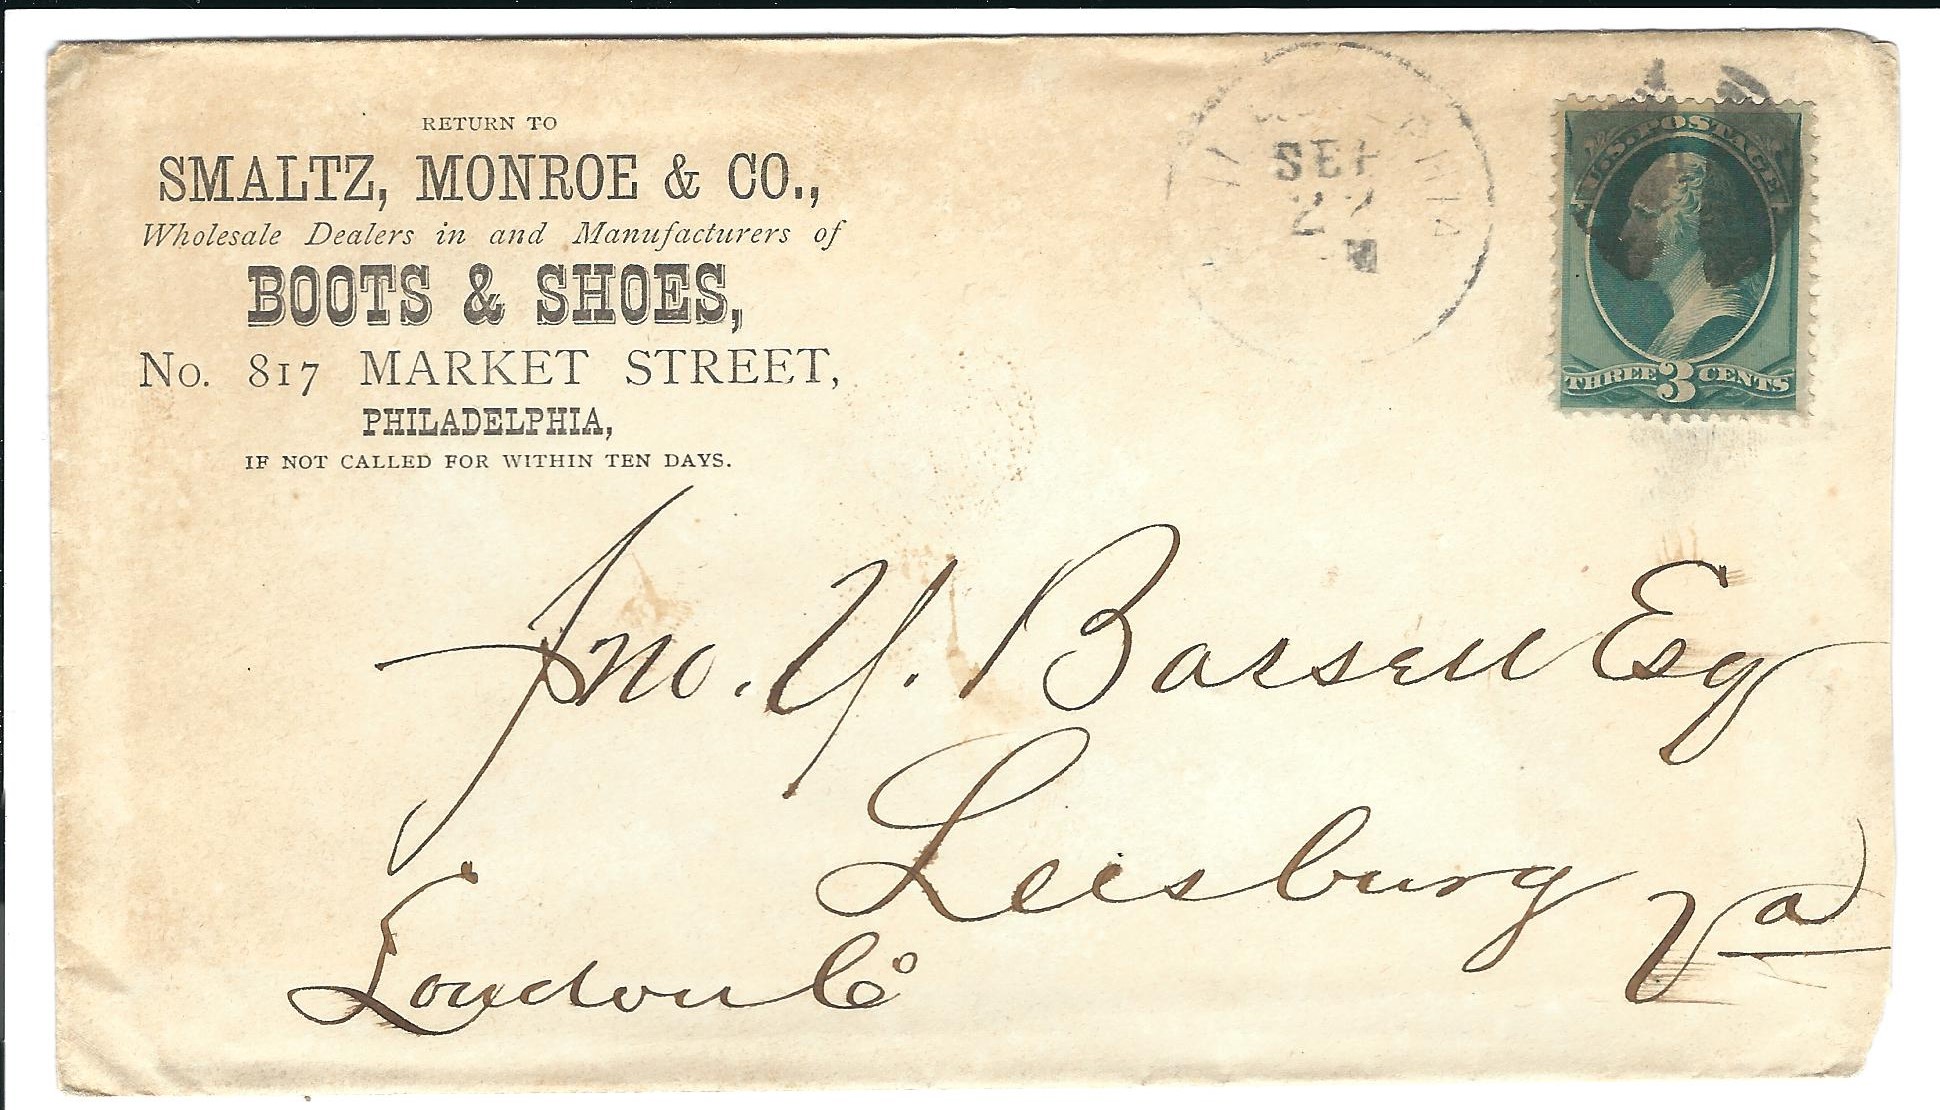 RETURN TO
SMALTZ, MONROE & CO.,
Wholesale Dealers in and Manufacturers of
BOOTS & SHOES,
No. 817 MARKET STREET,
PHILADELPHIA,
IF NOT CALLED FOR WITHIN TEN DAYS.
SEP
U.S. POSTAGE
THREE 3 CENTS
Jno. Y. Bassell Esq
Leesburg Va
Loudon Co